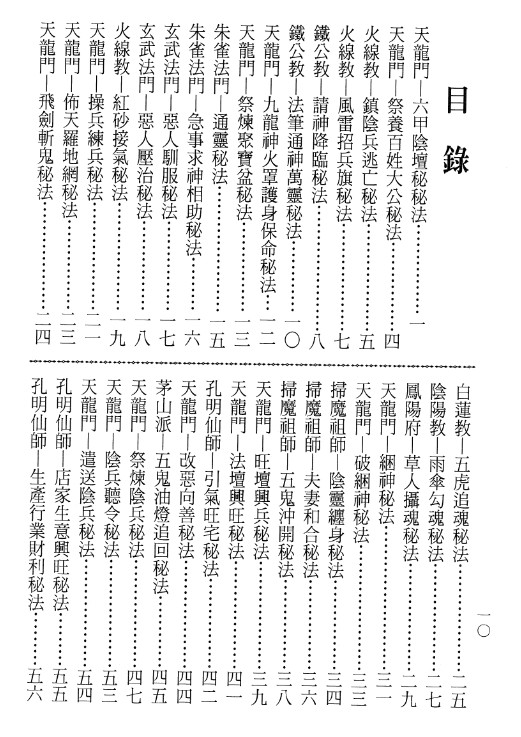 目錄
天龍門—六甲陰壇秘秘法…………一
天龍門—祭養百姓大公秘法…………四
火線教—鎮陰兵逃亡秘法…………五
火線教—風雷招兵旗秘法…………七
鐵公教—請神降臨秘法…………八
鐵公教—法筆通神萬靈秘法…………一〇
天龍門—九龍神火罩護身保命秘法…………一二
天龍門—祭煉聚寶盆秘法…………一三
朱雀法門—通靈秘法…………一五
朱雀法門—急事求神相助秘法…………一六
玄武法門—惡人馴服秘法…………一七
玄武法門—惡人壓治秘法…………一八
火線教—紅砂接氣秘法…………一九
天龍門—操兵練兵秘法…………二一
天龍門—佈天羅地網秘法…………二三
天龍門—飛劍斬鬼秘法…………二四
白蓮教—五虎追魂秘法…………二五
陰陽教—雨傘勾魂秘法…………二七
鳳陽府—草人攝魂秘法…………二九
天龍門—綑神秘法…………三一
天龍門—破綑神秘法…………三三
掃魔祖師—陰靈纏身秘法…………三四
掃魔祖師—夫妻和合秘法…………三六
掃魔祖師—五鬼沖開秘法…………三八
天龍門—旺壇興兵秘法…………三九
天龍門—法壇興旺秘法…………四一
孔明仙師—引氣旺宅秘法…………四二
天龍門—改惡向善秘法…………四四
茅山派—五鬼油燈追回秘法…………四五
天龍門—祭煉陰兵秘法…………四七
天龍門—陰兵聽令秘法…………五三
天龍門—遣送陰兵秘法…………五四
孔明仙師—店家生意興旺秘法…………五五
孔明仙師—生產行業財利秘法…………五六
一〇